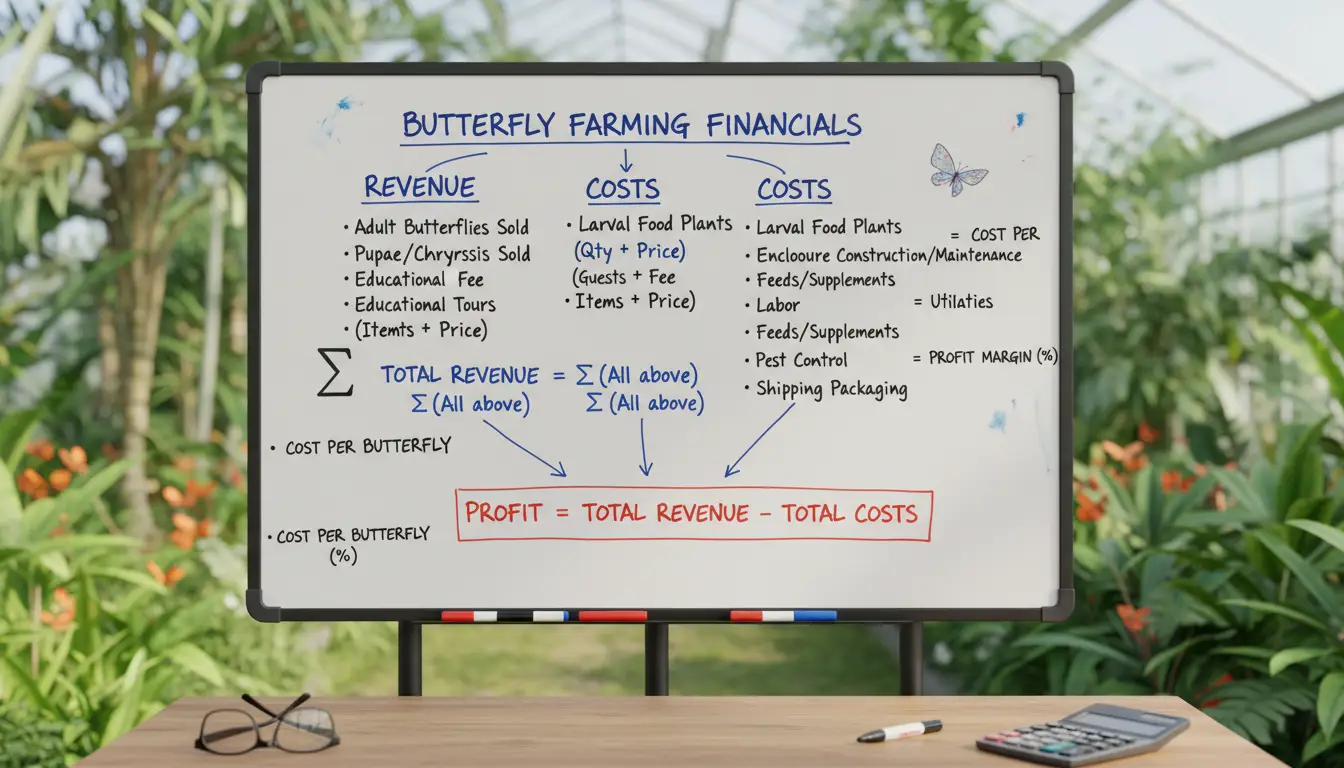 BUTTERFLY FARMING FINANCIALS
REVENUE
• Adult Butterflies Sold
• Pupae/Chryrssis Sold
• Educational Fee
• Educational Tours
• (Itemts + Price)
COSTS
• Larval Food Plants
(Qty + Price)
(Guests + Fee
• Items + Price)
COSTS
• Larval Food Plants
• Enclooure Construction/Maintenance
• Feeds/Supplements
• Labor
• Feeds/Supplements
• Pest Control
• Shipping Packaging
= COST PER
= Utilaties
= PROFIT MARGIN (%)
Σ
TOTAL REVENUE = Σ (All above)
Σ (All above) Σ (All above)
• COST PER BUTTERFLY
PROFIT = TOTAL REVENUE – TOTAL COSTS
• COST PER BUTTERFLY
(%)